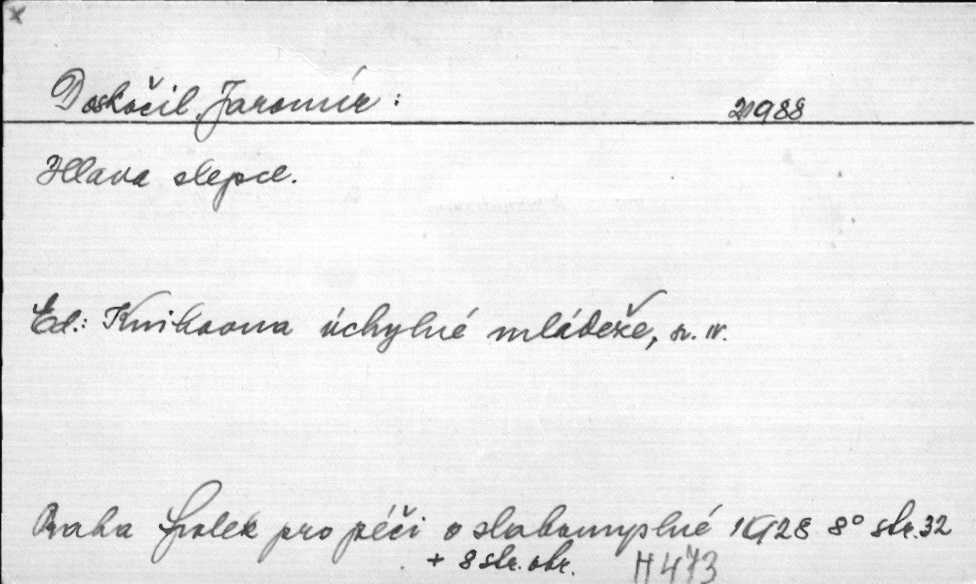 x
Doskočil, Jaromír: 21988
Hlava slepce.
Ed.: Knihovna úchylné mládeže, sv. IV.
Praha Spolek pro péči o slabomyslné 1928 8° str. 32
+ 8 str. obr. H 473